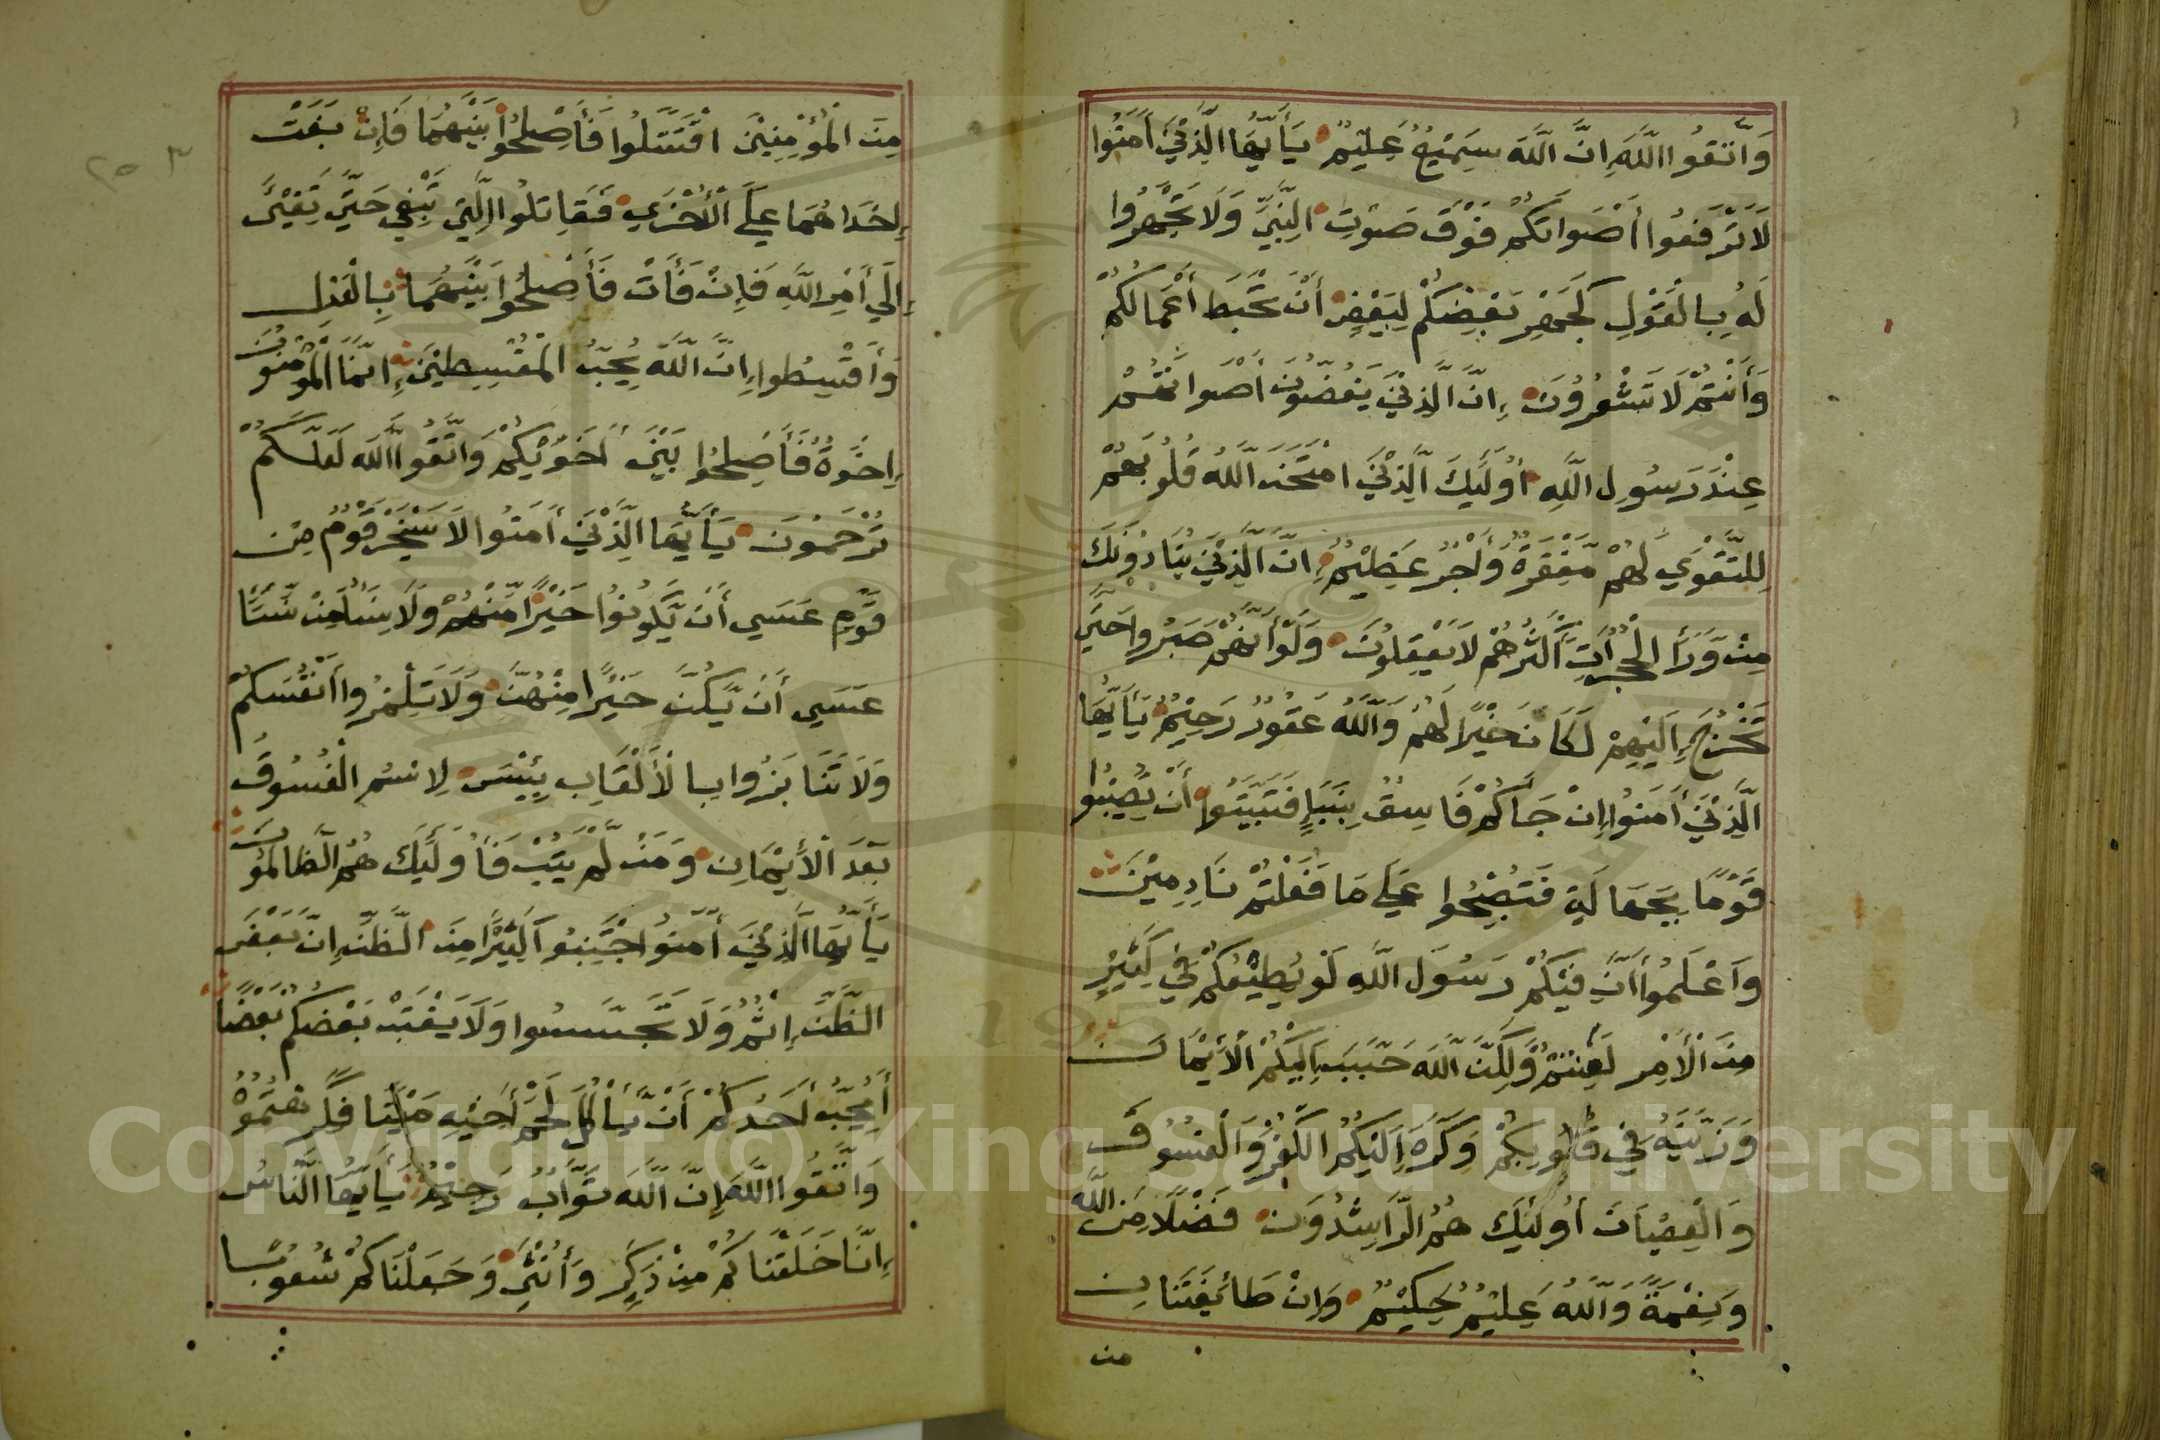 وَاتَّقُوا اللَّهَ إِنَّ اللَّهَ سَمِيْعٌ عَلِيْمٌ يَأَيُّهَا الَّذِيْنَ أَمَنُوا
لَا تَرْفَعُوا أَصْوَاتَكُمْ فَوْقَ صَوْتِ النَّبِيِّ وَلَا تَجْهَرُوا
لَهُ بِالْقَوْلِ كَجَهْرِ بَعْضِكُمْ لِبَعْضٍ أَنْ تَحْبَطَ أَعْمَالُكُمْ
وَأَنْتُمْ لَا تَشْعُرُوْنَ إِنَّ الَّذِيْنَ يَغُضُّوْنَ أَصْوَاتَهُمْ
عِنْدَ رَسُوْلِ اللَّهِ أُوْلَئِكَ الَّذِيْنَ امْتَحَنَ اللَّهُ قُلُوْبَهُمْ
لِلتَّقْوَي لَهُمْ مَّغْفِرَةٌ وَأَجْرٌ عَظِيْمٌ إِنَّ الَّذِيْنَ يُنَادُوْنَكَ
مِنْ وَّرَاَ الْحُجُرَاتِ أَكْثَرُهُمْ لَا يَعْقِلُوْنَ وَلَوْ أَنَّهُمْ صَبَرُوا حَتَّي
تَخْرُجَ إِلَيْهِمْ لَكَانَ خَيْرًا لَهُمْ وَاللَّهُ غَفُوْرٌ رَحِيْمٌ يَأَيُّهَا
الَّذِيْنَ أَمَنُوا إِنْ جَاَكُمْ فَاسِقٌ بِنَبَإٍ فَتَبَيَّنُوا أَنْ تُصِيْبُوا
قَوْمًا بِجَهَالَةٍ فَتُصْبِحُوا عَلَي مَا فَعَلْتُمْ نَادِمِيْنَ
وَاعْلَمُوا أَنَّ فِيْكُمْ رَسُوْلَ اللَّهِ لَوْ يُطِيْعُكُمْ فِي كَثِيْرٍ
مِنَ الْأَمْرِ لَعَنِتُّمْ وَلَكِنَّ اللَّهَ حَبَّبَ إِلَيْكُمُ الْأَيْمَانَ
وَزَيَّنَهُ فِي قُلُوْبِكُمْ وَكَرَّهَ إِلَيْكُمُ الْكُفْرَ وَالْفُسُوْقَ
وَالْعِصْيَانَ أُولَئِكَ هُمُ الرَّاشِدُوْنَ فَضْلًا مِنَ اللَّهِ
وَنِعْمَةً وَاللَّهُ عَلِيْمٌ حَكِيْمٌ وَإِنْ طَائِفَتَانِ
من
٢٥٣
مِنَ الْمُؤْمِنِيْنَ اقْتَتَلُوا فَأَصْلِحُوا بَيْنَهُمَا فَإِنْ بَغَتْ
إِحْدَاهُمَا عَلَي الْأُخْرَي فَقَاتِلُوا الَّتِي تَبْغِي حَتَّي تَفِيْئَ
إِلَي أَمْرِ اللَّهِ فَإِنْ فَأَتْ فَأَصْلِحُوا بَيْنَهُمَا بِالْعَدْلِ
وَأَقْسِطُوا إِنَّ اللَّهَ يُحِبُّ الْمُقْسِطِيْنَ إِنَّمَا الْمُؤْمِنُوْنَ
إِخْوَةٌ فَأَصْلِحُوا بَيْنَ أَخَوَيْكُمْ وَاتَّقُوا اللَّهَ لَعَلَّكُمْ
تُرْحَمُوْنَ يَأَيُّهَا الَّذِيْنَ أَمَنُوا لَا يَسْخَرْ قَوْمٌ مِنْ
قَوْمٍ عَسَي أَنْ يَكُوْنُوا خَيْرًا مِنْهُمْ وَلَا نِسَاٌ مِنْ نِّسَاٍ
عَسَي أَنْ يَّكُنَّ خَيْرًا مِنْهُنَّ وَلَا تَلْمِزُوا أَنْفُسَكُمْ
وَلَا تَنَابَزُوا بِالْأَلْقَابِ بِئْسَ لِاسْمُ الْفُسُوْقُ
بَعْدَ الْأَيْمَانِ وَمَنْ لَّمْ يَتُبْ فَأُولَئِكَ هُمُ الظَّالِمُوْنَ
يَأَيُّهَا الَّذِيْنَ أَمَنُوا اجْتَنِبُوا كَثِيْرًا مِنَ الظَّنِّ إِنَّ بَعْضَ
الظَّنِّ إِثْمٌ وَلَا تَجَسَّسُوا وَلَا يَغْتَبْ بَعْضُكُمْ بَعْضًا
أَيُحِبُّ أَحَدُكُمْ أَنْ يَّأْكُلَ لَحْمَ أَخِيْهِ مَيْتًا فَكَرِهْتُمُوْهُ
وَاتَّقُوا اللَّهَ إِنَّ اللَّهَ تَوَّابٌ رَحِيْمٌ يَأَيُّهَا النَّاسُ
إِنَّا خَلَقْنَاكُمْ مِنْ ذَكَرٍ وَأُنْثَي وَجَعَلْنَاكُمْ شُعُوْبًا
Copyright © King Saud University